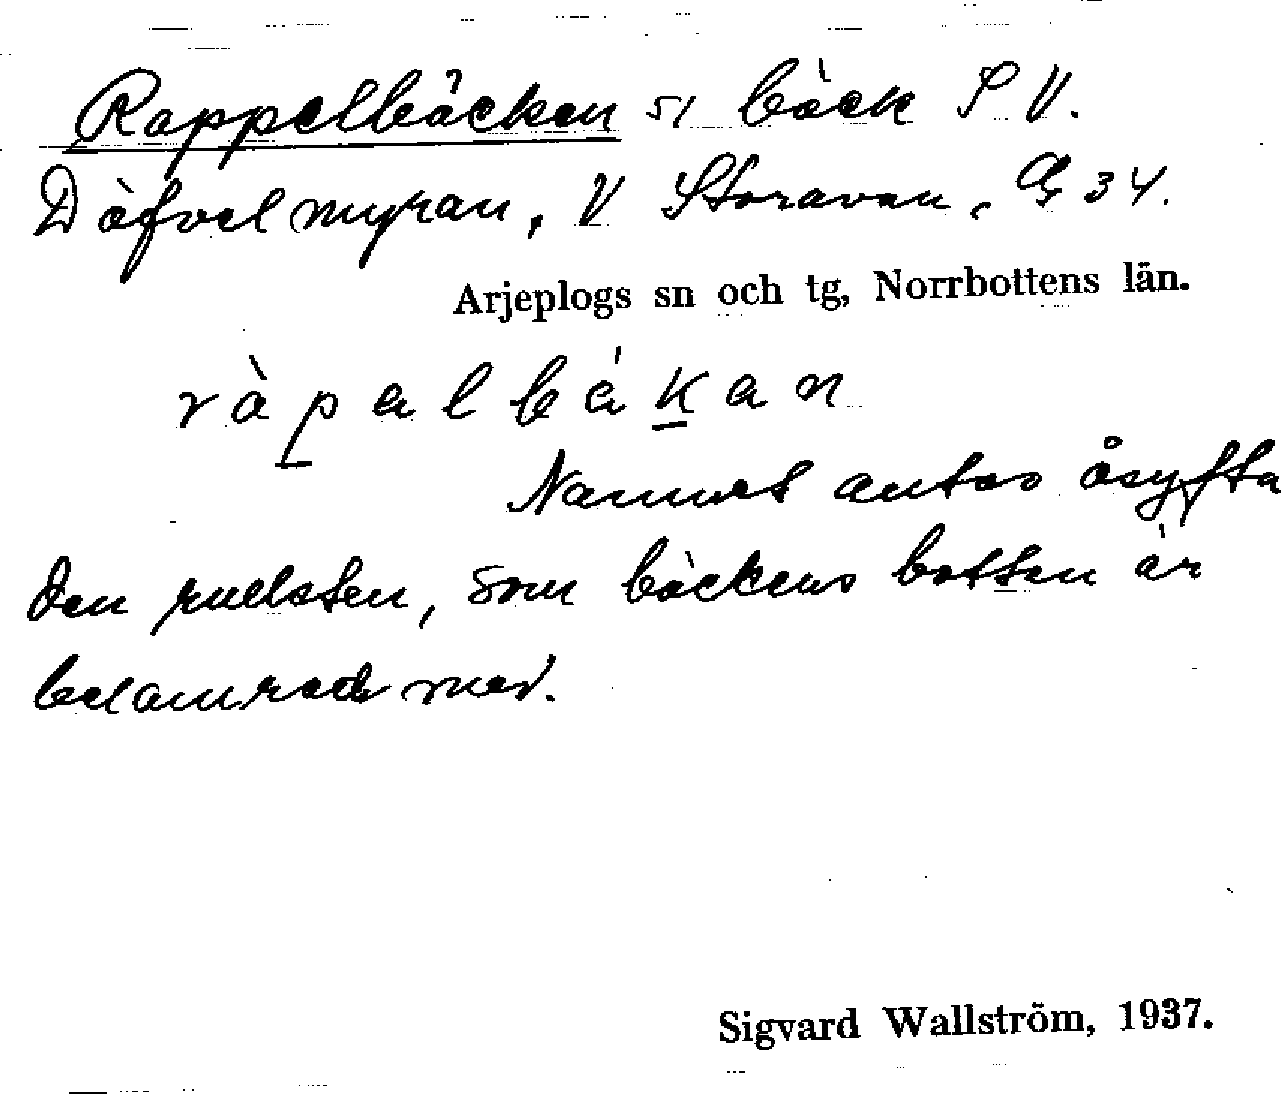 Rappelbäcken 51 bäck S V.
Däfvelmyran, V Storavan, G 34.
Arjeplogs sn och tg, Norrbottens län.
ràpalbákan
Namnet antas åsyfta
den rullsten, som bäckens botten är
belamrad med.
Sigvard Wallström, 1937.